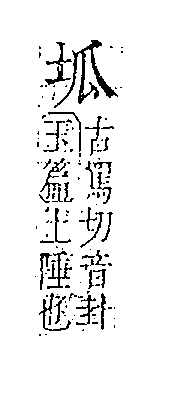 坬
古罵切音卦
玉篇土埵也